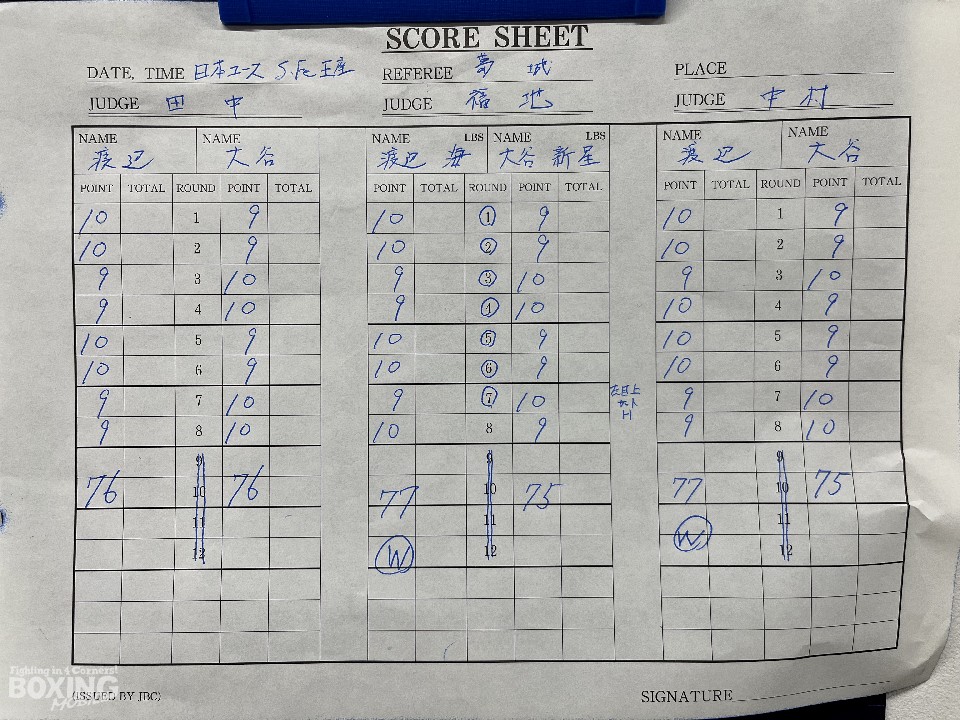 SCORE SHEET
DATE, TIME 日本ユース S.Fe 王座 REFEREE 葛城 PLACE
JUDGE 田中 JUDGE 福地 JUDGE 中村
NAME NAME NAME LBS NAME LBS NAME NAME
渡辺 大谷 渡辺 海 大谷 新星 渡辺 大谷
POINT TOTAL ROUND POINT TOTAL POINT TOTAL ROUND POINT TOTAL POINT TOTAL ROUND POINT TOTAL
10 1 9 10 1 9 10 1 9
10 2 9 10 2 9 10 2 9
9 3 10 9 3 10 9 3 10
9 4 10 9 4 10 10 4 9
10 5 9 10 5 9 10 5 9
10 6 9 10 6 9 10 6 9
9 7 10 9 7 10 左目上 9 7 10
9 8 10 10 8 9 9 8 10
9 9 9
76 10 76 77 10 75 77 10 75
11 11 W 11
12 W 12 12
(ISSUED BY JBC) SIGNATURE
Fighting in 4 Corners!
BOXING
MOBILE